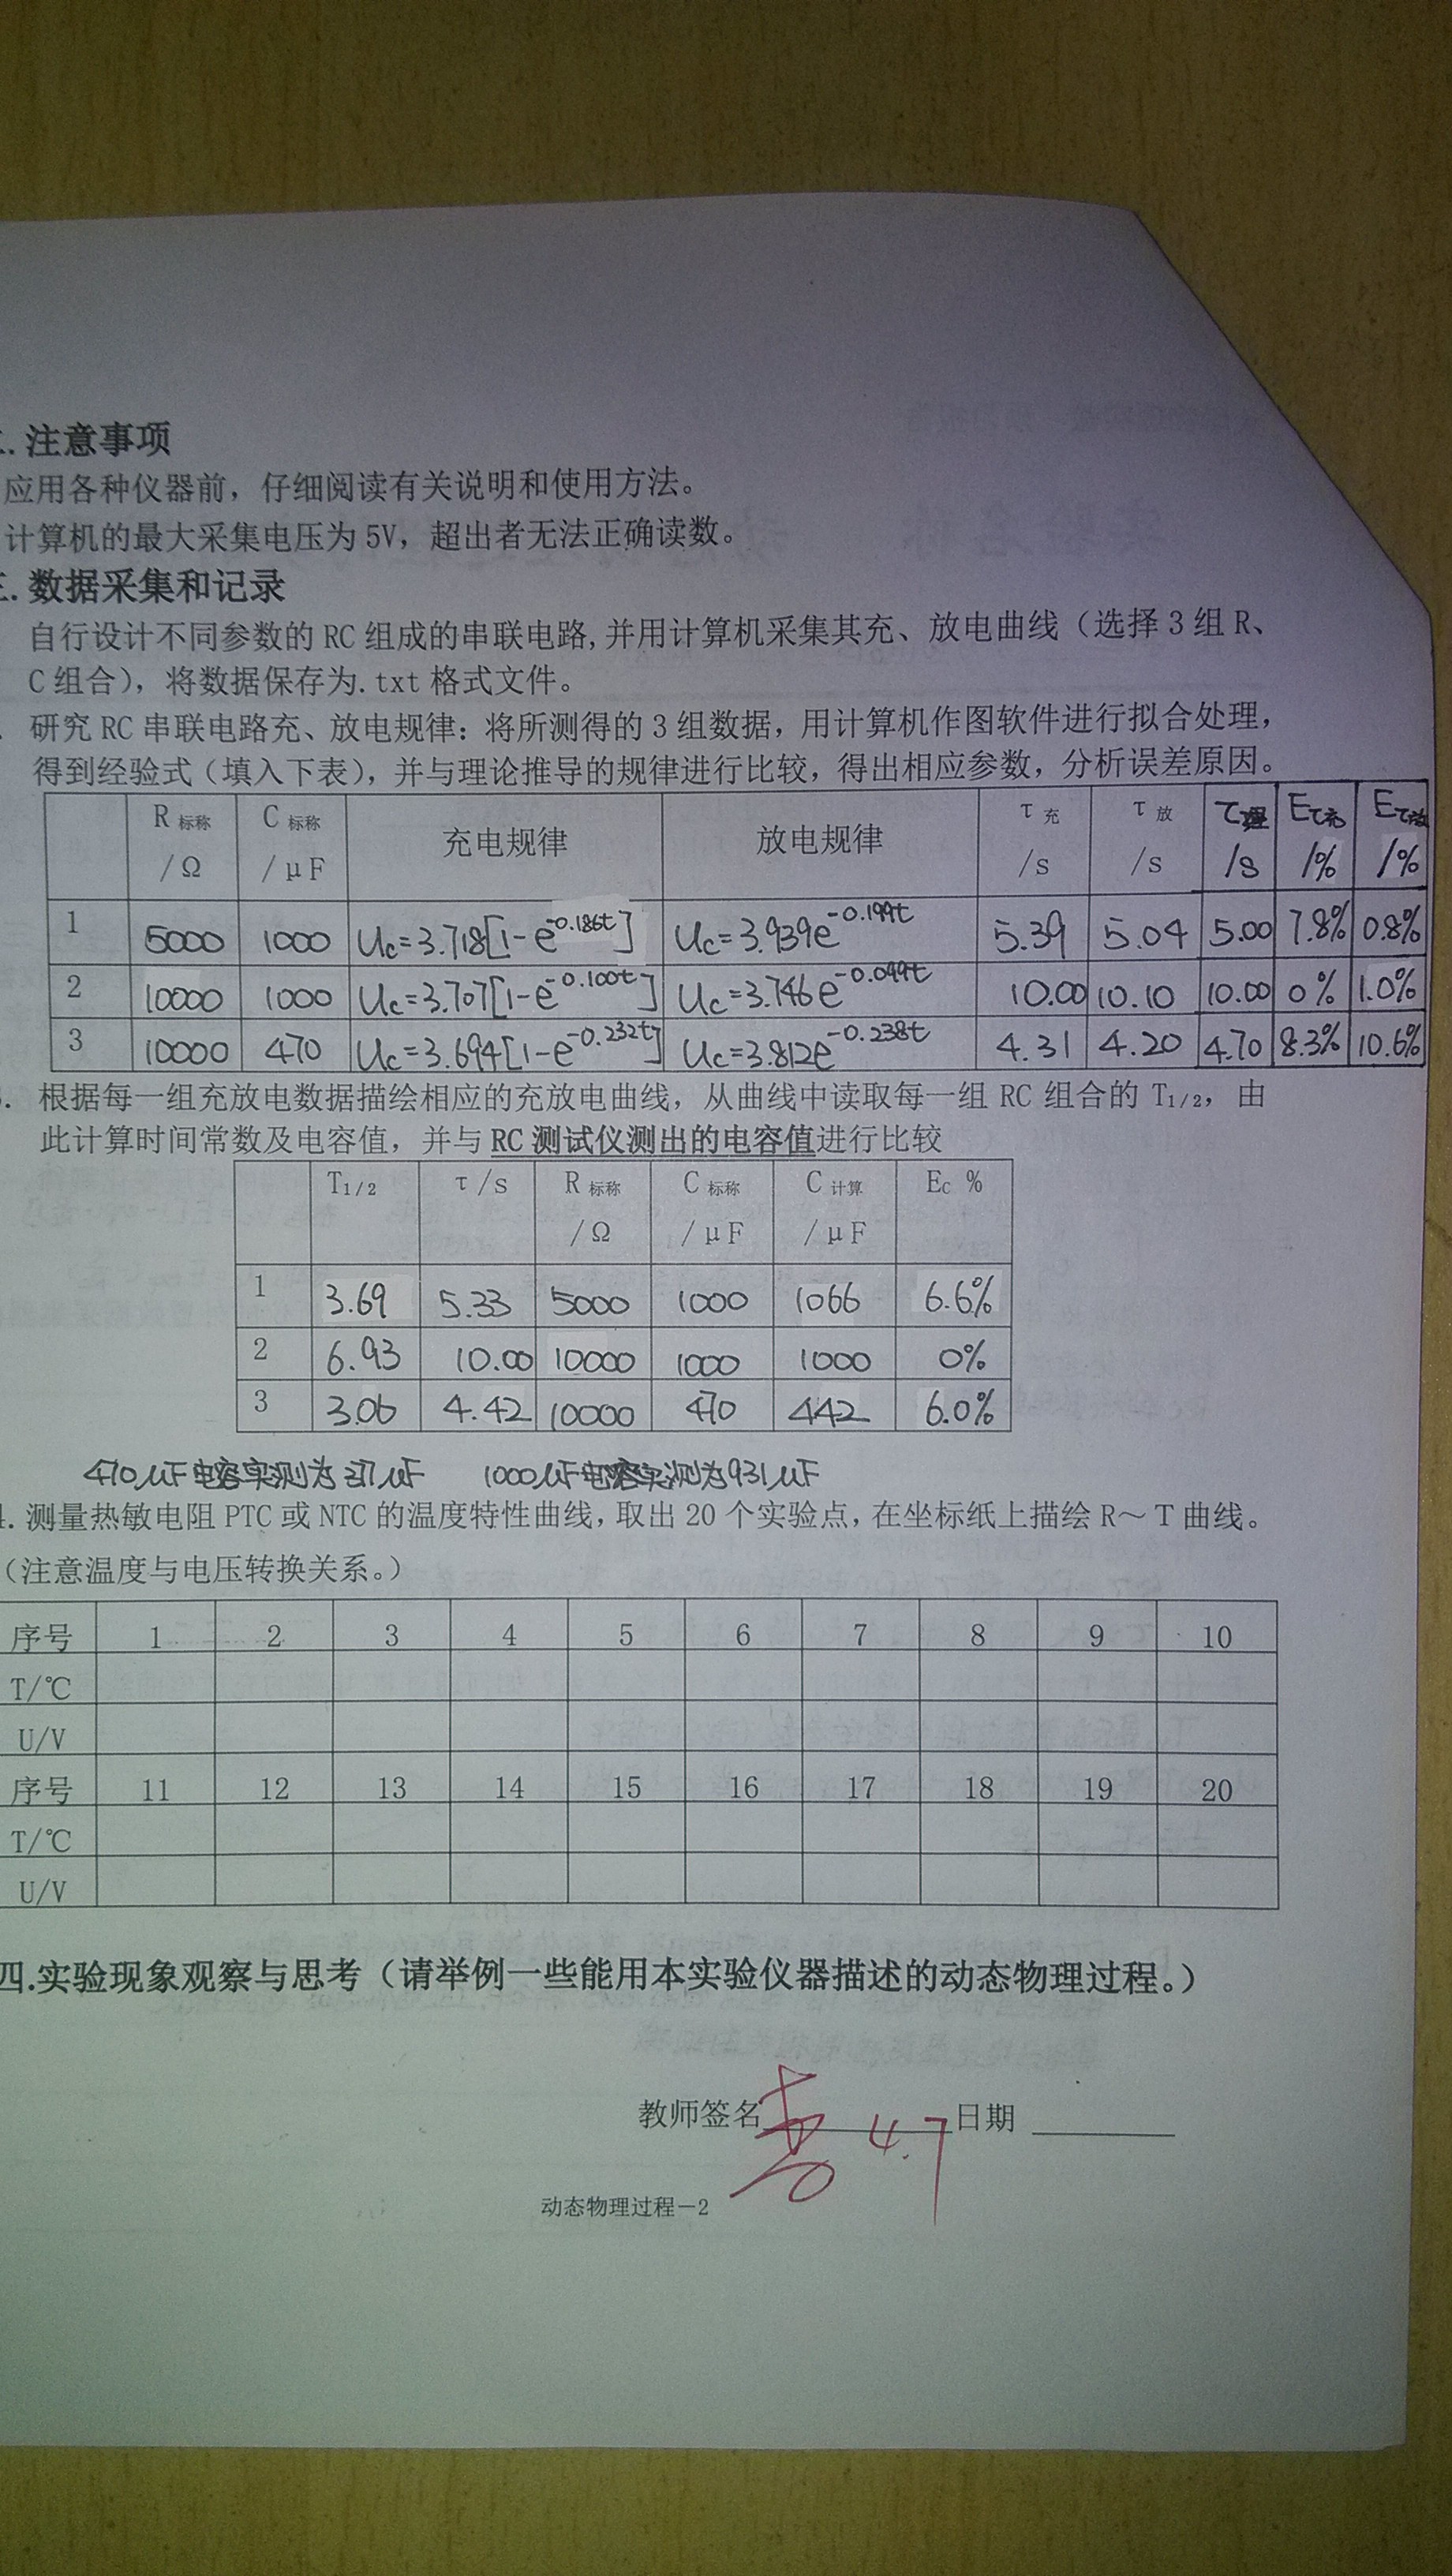 .注意事项
应用各种仪器前，仔细阅读有关说明和使用方法。
计算机的最大采集电压为5V，超出者无法正确读数。
.数据采集和记录
自行设计不同参数的 RC 组成的串联电路,并用计算机采集其充、放电曲线（选择 3 组 R、
C 组合），将数据保存为.txt 格式文件。
研究 RC 串联电路充、放电规律：将所测得的 3 组数据，用计算机作图软件进行拟合处理，
得到经验式（填入下表），并与理论推导的规律进行比较，得出相应参数，分析误差原因。
R 标称 /Ω C 标称 /μF 充电规律 放电规律 τ 充 /s τ 放 /s τ理 /s Eτ充 /% Eτ放 /%
1 5000 1000 Uc=3.718[1-e^-0.186t] Uc=3.939e^-0.199t 5.39 5.04 5.00 7.8% 0.8%
2 10000 1000 Uc=3.707[1-e^-0.100t] Uc=3.746e^-0.099t 10.00 10.10 10.00 0% 1.0%
3 10000 470 Uc=3.694[1-e^-0.232t] Uc=3.812e^-0.238t 4.31 4.20 4.70 8.3% 10.6%
. 根据每一组充放电数据描绘相应的充放电曲线，从曲线中读取每一组 RC 组合的 T1/2，由
此计算时间常数及电容值，并与 RC 测试仪测出的电容值进行比较
T1/2 τ/s R 标称 /Ω C 标称 /μF C 计算 /μF EC %
1 3.69 5.33 5000 1000 1066 6.6%
2 6.93 10.00 10000 1000 1000 0%
3 3.06 4.42 10000 470 442 6.0%
470μF电容实测为 μF 1000μF电容实测为931μF
.测量热敏电阻 PTC 或 NTC 的温度特性曲线，取出 20 个实验点，在坐标纸上描绘 R～T 曲线。
（注意温度与电压转换关系。）
序号 1 2 3 4 5 6 7 8 9 10
T/℃
U/V
序号 11 12 13 14 15 16 17 18 19 20
T/℃
U/V
四.实验现象观察与思考（请举例一些能用本实验仪器描述的动态物理过程。）
教师签名 4.7 日期
动态物理过程－2